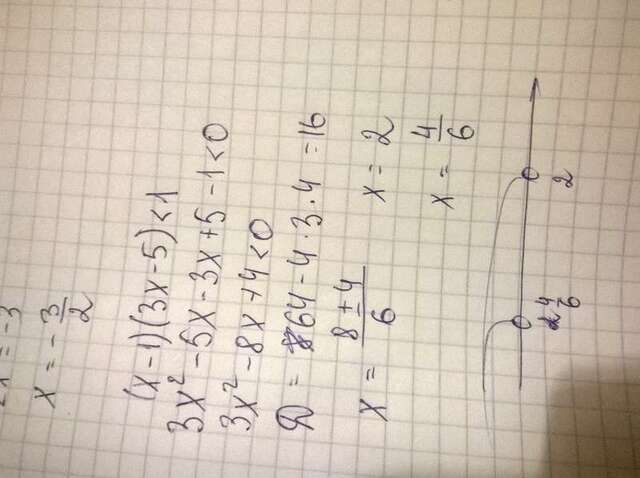 x = -3/2
(x-1)(3x-5)<1
3x²-5x-3x+5-1<0
3x²-8x+4<0
D = 64-4·3·4=16
x = (8±4)/6 x = 2
x = 4/6
4/6 2